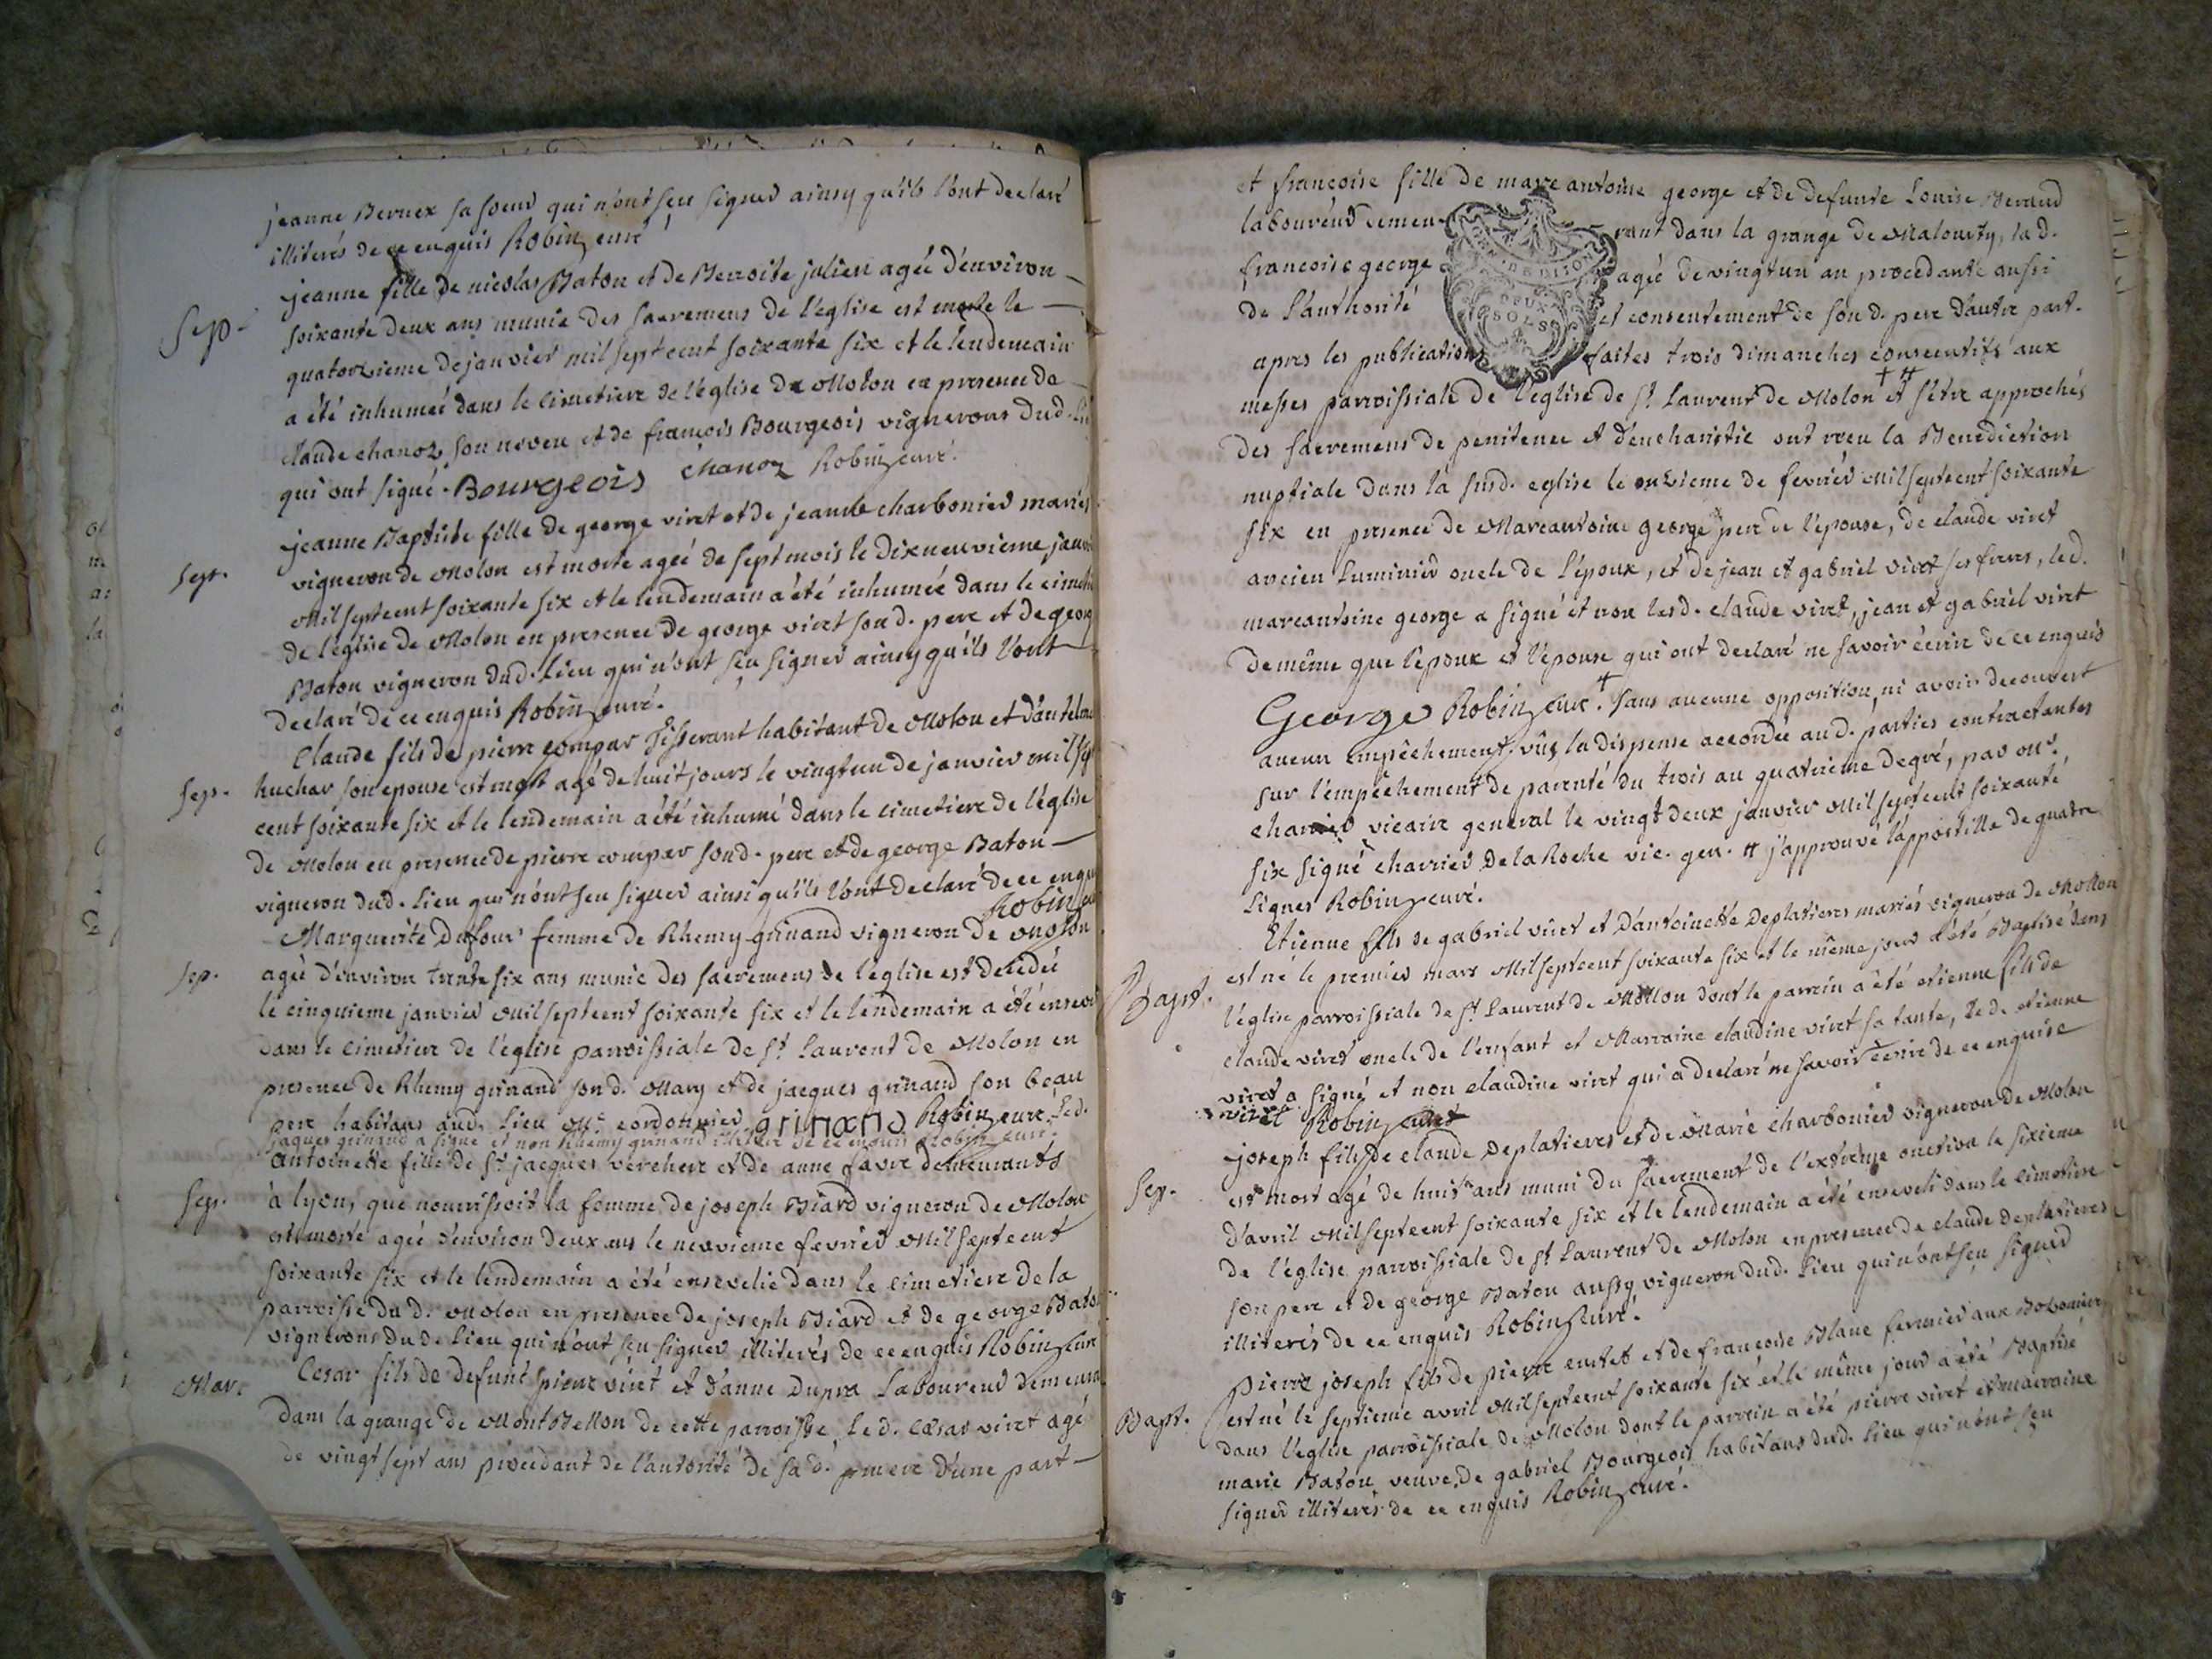 jeanne Bernex sa soeur qui n'ont seu signer ainsy qu'ils l'ont declaré
illiterés de ce enquis Robin curé
Sep.
jeanne fille de nicolas Baton et de Benoite julien agée d'environ
soixante deux ans munie des sacremens de l'eglise est morte le
quatorzieme de janvier mil sept cent soixante six et le lendemain
a été inhumée dans le cimetiere de l'église de Molon en presence de
claude chanoz son neveu et de françois Bourgeois vignerons dud.
qui ont signé. Bourgeois chanoz Robin curé.
sep.
jeanne Baptiste fille de george viret et de jeanne charbonier mariés
vigneron de Molon est morte ageé de sept mois le dixneuvieme
Mil septcent soixante six et le lendemain a été inhumée dans le
de l'église de Molon en presence de george viret son d. pere et de
Baton vigneron dud. Lieu qui n'ont seu signer ainsy qu'ils l'ont
declaré de ce enquis Robin curé.
Sep.
Claude fils de pierre compar Tisserant habitant de Molon et
huchar son epouse est mort agé de huit jours le vingtun de janvier
cent soixante six et le lendemain a été inhumé dans le cimetiere de l'église
de Molon en presence de pierre compar son d. pere et de george Baton
vigneron dud. Lieu qui n'ont seu signer ainsi qu'ils l'ont declaré de ce
Robin
sep.
Marguerite Dufour femme de Rhemy grinand vigneron de Molon
ageé d'environ trente six ans munie des sacremens de l'eglise est decedeé
le cinquieme janvier Mil septcent soixante six et le lendemain a été
dans le cimetiere de l'eglise parroissiale de St Laurent de Molon en
presence de Rhemy grinand son d. Mary et de jacques grinand son beau
pere habitans aud. Lieu Me cordonnier grinand Robin curé. Led.
jaques grinand a signé et non Rhemy grinand illiteré de ce enquis Robin curé.
Sep.
Antoinette fille de Sr jacques verchere et de anne favre demeurants
à lyon, que nourrissoit la femme de joseph Biard vigneron de Molon
est morte ageé d'environ deux ans le neuvieme fevrier Mil septcent
soixante six et le lendemain a été ensevelie dans le cimetiere de la
parroisse du d. Molon en presence de joseph Biard et de george
vignerons du d. Lieu qui n'ont seu signer illiterés de ce enquis Robin curé
Mar.
Cesar fils de defunt pierre viret et d'anne Dupra Laboureur
dans la grange de Mont Bellon de cette parroisse, Le d. cesar viret agé
de vingt sept ans procedant de l'autorité de sa d. mere d'une part
et françoise fille de marc antoine george et de defunte Louise
laboureur demeurant dans la grange de Malourty, la d.
francoise george ageé de vingtun an procedante aussi
de l'authorité et consentement de son d. pere d'autre part.
apres les publications faites trois dimanches consecutifs aux
messes parroissiale de l'eglise de St. Laurent de Molon et s'être approchés
GEN. DE DIJON
DEUX
SOLS
des sacremens de penitence et d'eucharistie ont reçu la Benediction
nuptiale dans la susd. eglise le onzieme de fevrier Mil septcent soixante
six en presence de Marcantoine george pere de l'epouse, de claude viret
ancien Luminier oncle de l'epoux, et de jean et gabriel viret ses freres, led.
marcantoine george a signé et non lesd. claude viret, jean et gabriel viret
de même que l'epoux et l'epouse qui ont declaré ne savoir écrire de ce enquis
George Robin curé. sans aucune opposition, ni avoir decouvert
aucun empêchement, vû la dispense accordée aud. parties contractantes
sur l'empêchement de parenté du trois au quatrieme degré, par Mr.
charrier vicaire general le vingt deux janvier Mil septcent soixante
six signé charrier de la Roche vic. gen. j'approuve l'appostille de quatre
Lignes Robin curé.
Bapt.
Etienne fils de gabriel viret et d'antoinette Deplatieres mariés vigneron de Mollon
est né le premier mars Mil septcent soixante six et le même jour a été Baptisé dans
l'église parroissiale de St Laurent de Mollon dont le parrein a été etienne fils de
claude viret oncle de l'enfant et Marraine claudine viret sa tante, le d. etienne
viret a signé et non claudine viret qui a declaré ne savoir ècrire de ce enquise
viret Robin curé
Sep.
joseph fils de claude Deplatieres et de Marie charbonier vigneron de Molon
est mort agé de huit ans muni du sacrement de l'extrême onction le sixieme
d'avril Mil septcent soixante six et le lendemain a été enseveli dans le cimetiere
de l'église parroissiale de St Laurent de Molon en presence de claude Deplatieres
son pere et de george Baton aussy vigneron dud. Lieu qui n'ont seu signer
illiterés de ce enquis Robin curé.
Bapt.
Pierre joseph fils de pierre et de françoise Blanc fermier aux
est né le septieme avril Mil septcent soixante six et le même jour a été Baptisé
dans l'eglise parroissiale de Molon dont le parrein a été pierre viret et marraine
marie Baton veuve de gabriel Bourgeois habitans dud. Lieu qui n'ont seu
signer illiterés de ce enquis Robin curé.